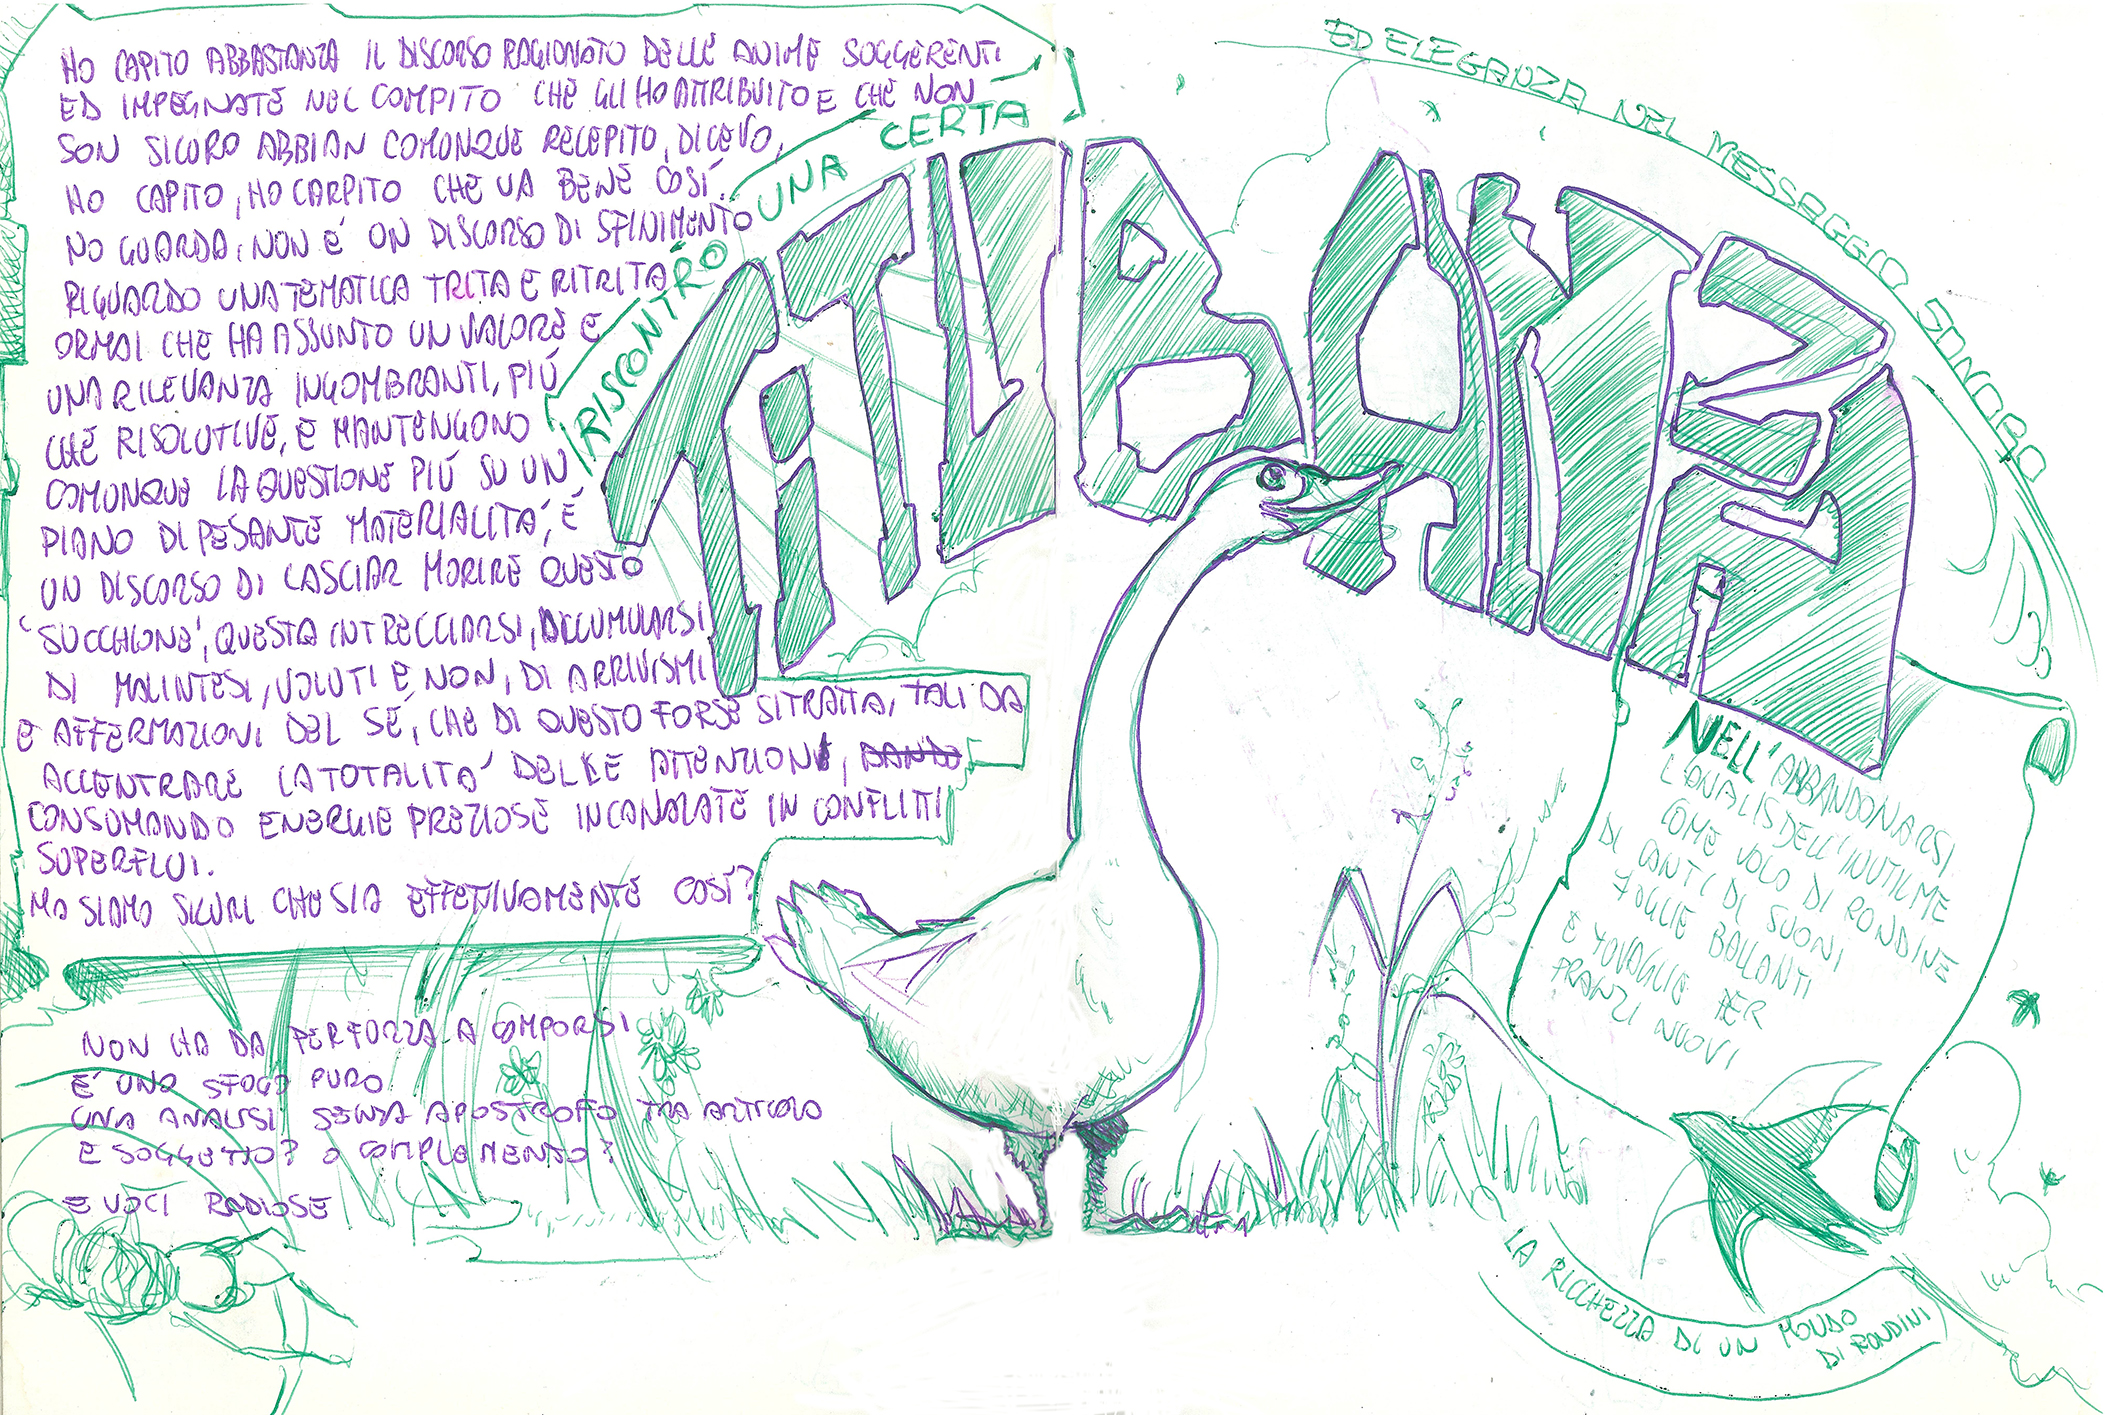 HO CAPITO ABBASTANZA IL DISCORSO RAGIONATO DELLE ANIME SUGGERENTI
ED IMPEGNATE NEL COMPITO CHE GLI HO ATTRIBUITO E CHE NON
SON SICURO ABBIAN COMUNQUE RECEPITO, DICEVO,
HO CAPITO, HO CARPITO CHE VA BENE COSÍ.
NO GUARDA, NON É UN DISCORSO DI SFINIMENTO
RIGUARDO UNA TEMATICA TRITA E RITRITA
ORMAI CHE HA ASSUNTO UN VALORE E
UNA RILEVANZA INGOMBRANTI, PIÚ
CHE RISOLUTIVE, E MANTENGONO
COMUNQUE LA QUESTIONE PIÚ SU UN
PIANO DI PESANTE MATERIALITA', É
UN DISCORSO DI LASCIAR MORIRE QUESTO
'SUCCHIONE', QUESTA INTRECCIARSI, ACCUMULARSI
DI MALINTESI, VOLUTI E NON, DI ARRIVISMI
E AFFERMAZIONI DEL SÉ, CHE DI QUESTO FORSE SI TRATTA, TALI DA
ACCENTRARE LA TOTALITA' DELLE ATTENZIONI, DANDO
CONSUMANDO ENERGIE PREZIOSE INCANALATE IN CONFLITTI
SUPERFLUI.
MA SIAMO SICURI CHE SIA EFFETTIVAMENTE COSÍ?
NON HA DA PERFORZA A COMPORSI
E' UNO SFOGO PURO
UNA ANALISI SENZA APOSTROFO TRA ARTICOLO
E SOGGETTO? O COMPLEMENTO?
E VOCI RADIOSE
RISCONTRO UNA CERTA
TITUBANZA
ED ELEGANZA NEL MESSAGGIO SONORO
NELL'ABBANDONARSI
L'ANALISI DELL'INUTIL ME
COME VOLO DI RONDINE
DI CANTI DI SUONI
FOGLIE BALLANTI
E TOVAGLIE PER
PRANZI NUOVI
LA RICCHEZZA DI UN MONDO
DI RONDINI